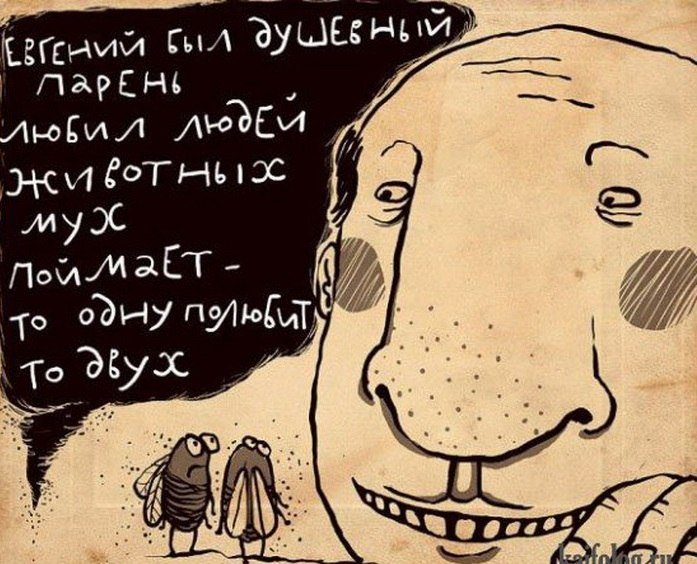 ЕВГЕНИЙ БЫЛ ДУШЕВНЫЙ
ПАРЕНЬ
ЛЮБИЛ ЛЮДЕЙ
ЖИВОТНЫХ
МУХ
ПОЙМАЕТ -
ТО ОДНУ ПОЛЮБИТ
ТО ДВУХ
kaifolog.ru